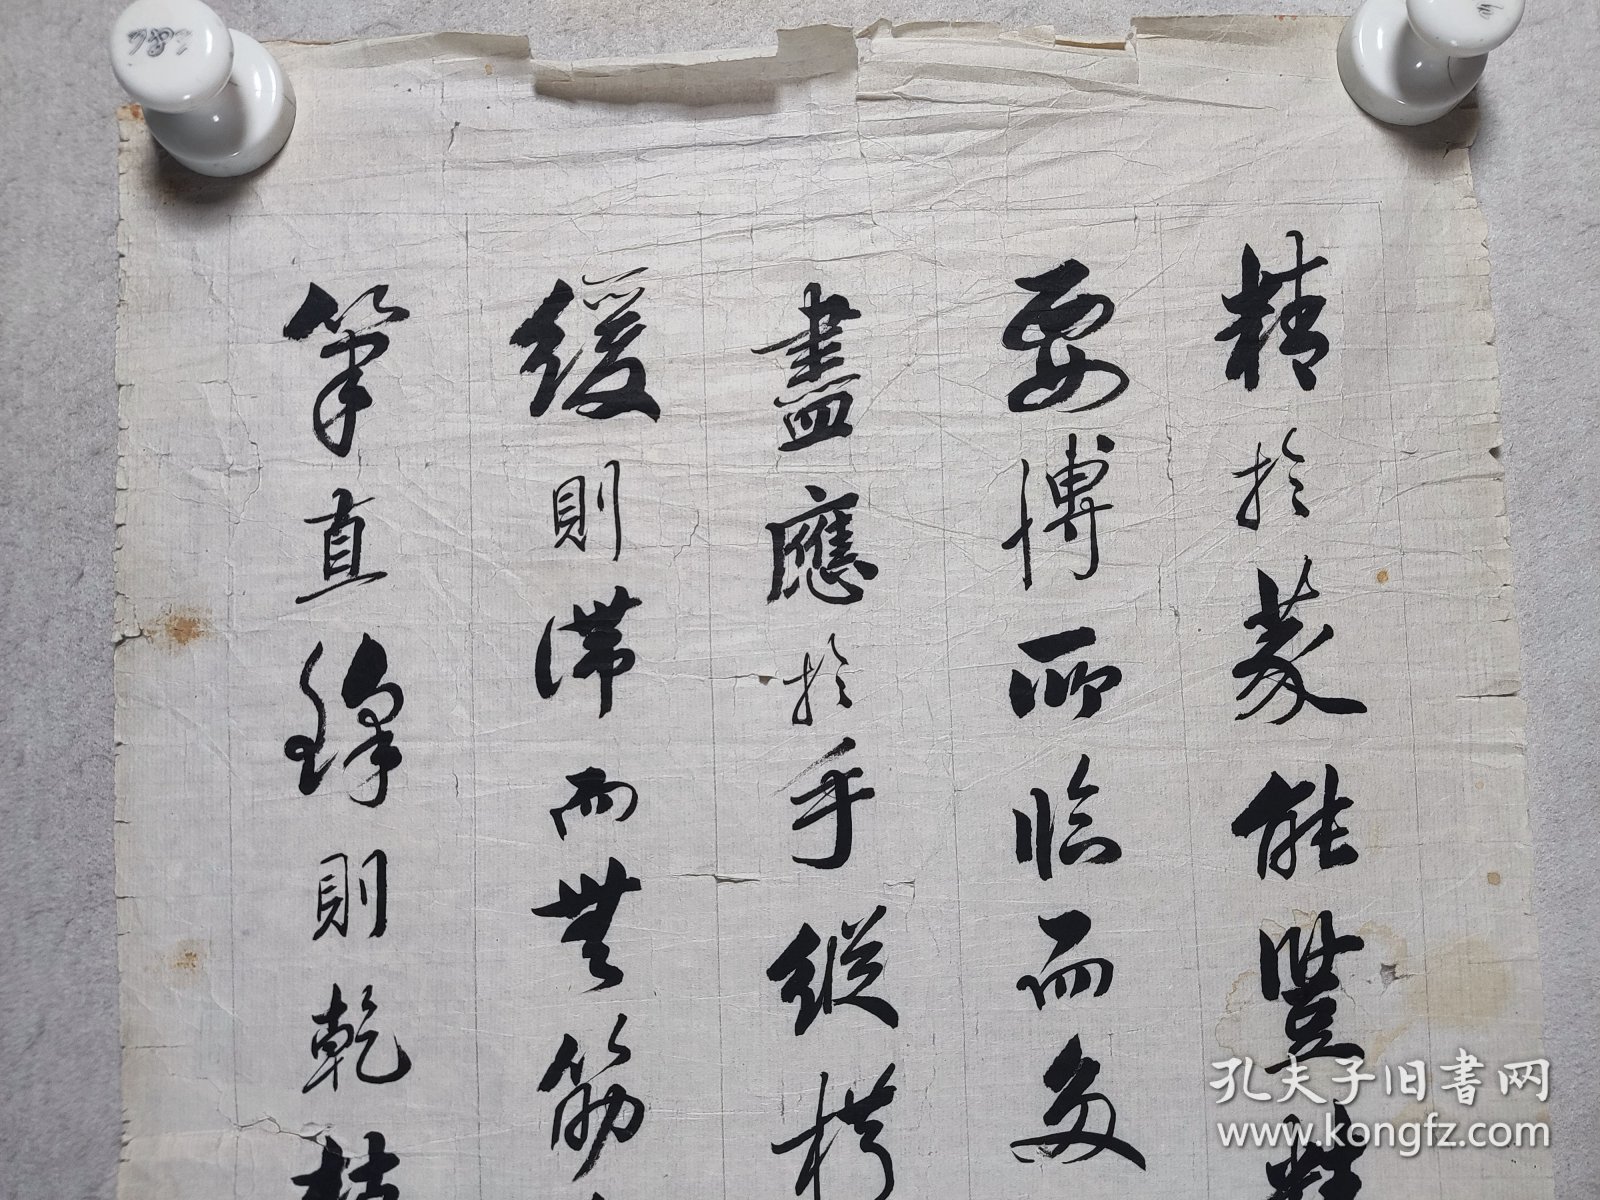 精於蒙能豐精
要博所臨而多
盡應於手縱横
緩則滯而無筋
筆直鋒則乾枯
孔夫子旧书网
www.kongfz.com